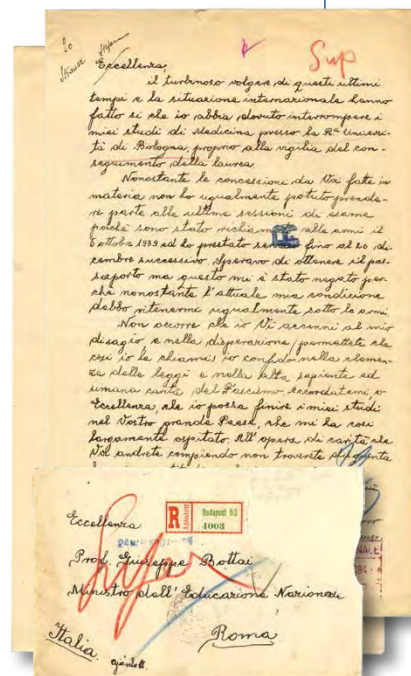 20
Strauss Stefan
Sup
Eccellenza,
il turbinoso volgere di questi ultimi
tempi e la situazione internazionale hanno
fatto si che io abbia dovuto interrompere i
miei studi di Medicina presso la Rª Universi-
tà di Bologna, proprio alla vigilia del con-
seguimento della laurea.
Nonostante la concessione da Voi fatte in
materia non ho ugualmente potuto prende-
re parte alle ultime sessioni di esame
poiché sono stato richiam alle armi il
5 ottobre 1939 ed ho prestato fino al 20 di-
cembre successivo. Speravo di ottenere il pas-
saporto ma questo mi è stato negato per-
chè nonostante l'attuale mia condizione
debbo ritenermi ugualmente sotto le armi.
Non occorre che io Vi accenni al mio
disagio e nella disperazione, permettete che
così io la chiami, io confido nella clemen-
za delle leggi e nella alta, sapiente ed
umana carità del Fascismo: accordatemi, o
Eccellenza, che io possa finire i miei studi
nel Vostro grande Paese, che mi ha così
largamente ospitato. All'opera di carità che
Voi andrete compiendo non troverete
R Budapest 62
Ajánlott 4003
Eccellenza
Prof. Giuseppe Bottai
Ministro dell'Educazione Nazionale
Roma
Italia.
ajánlott